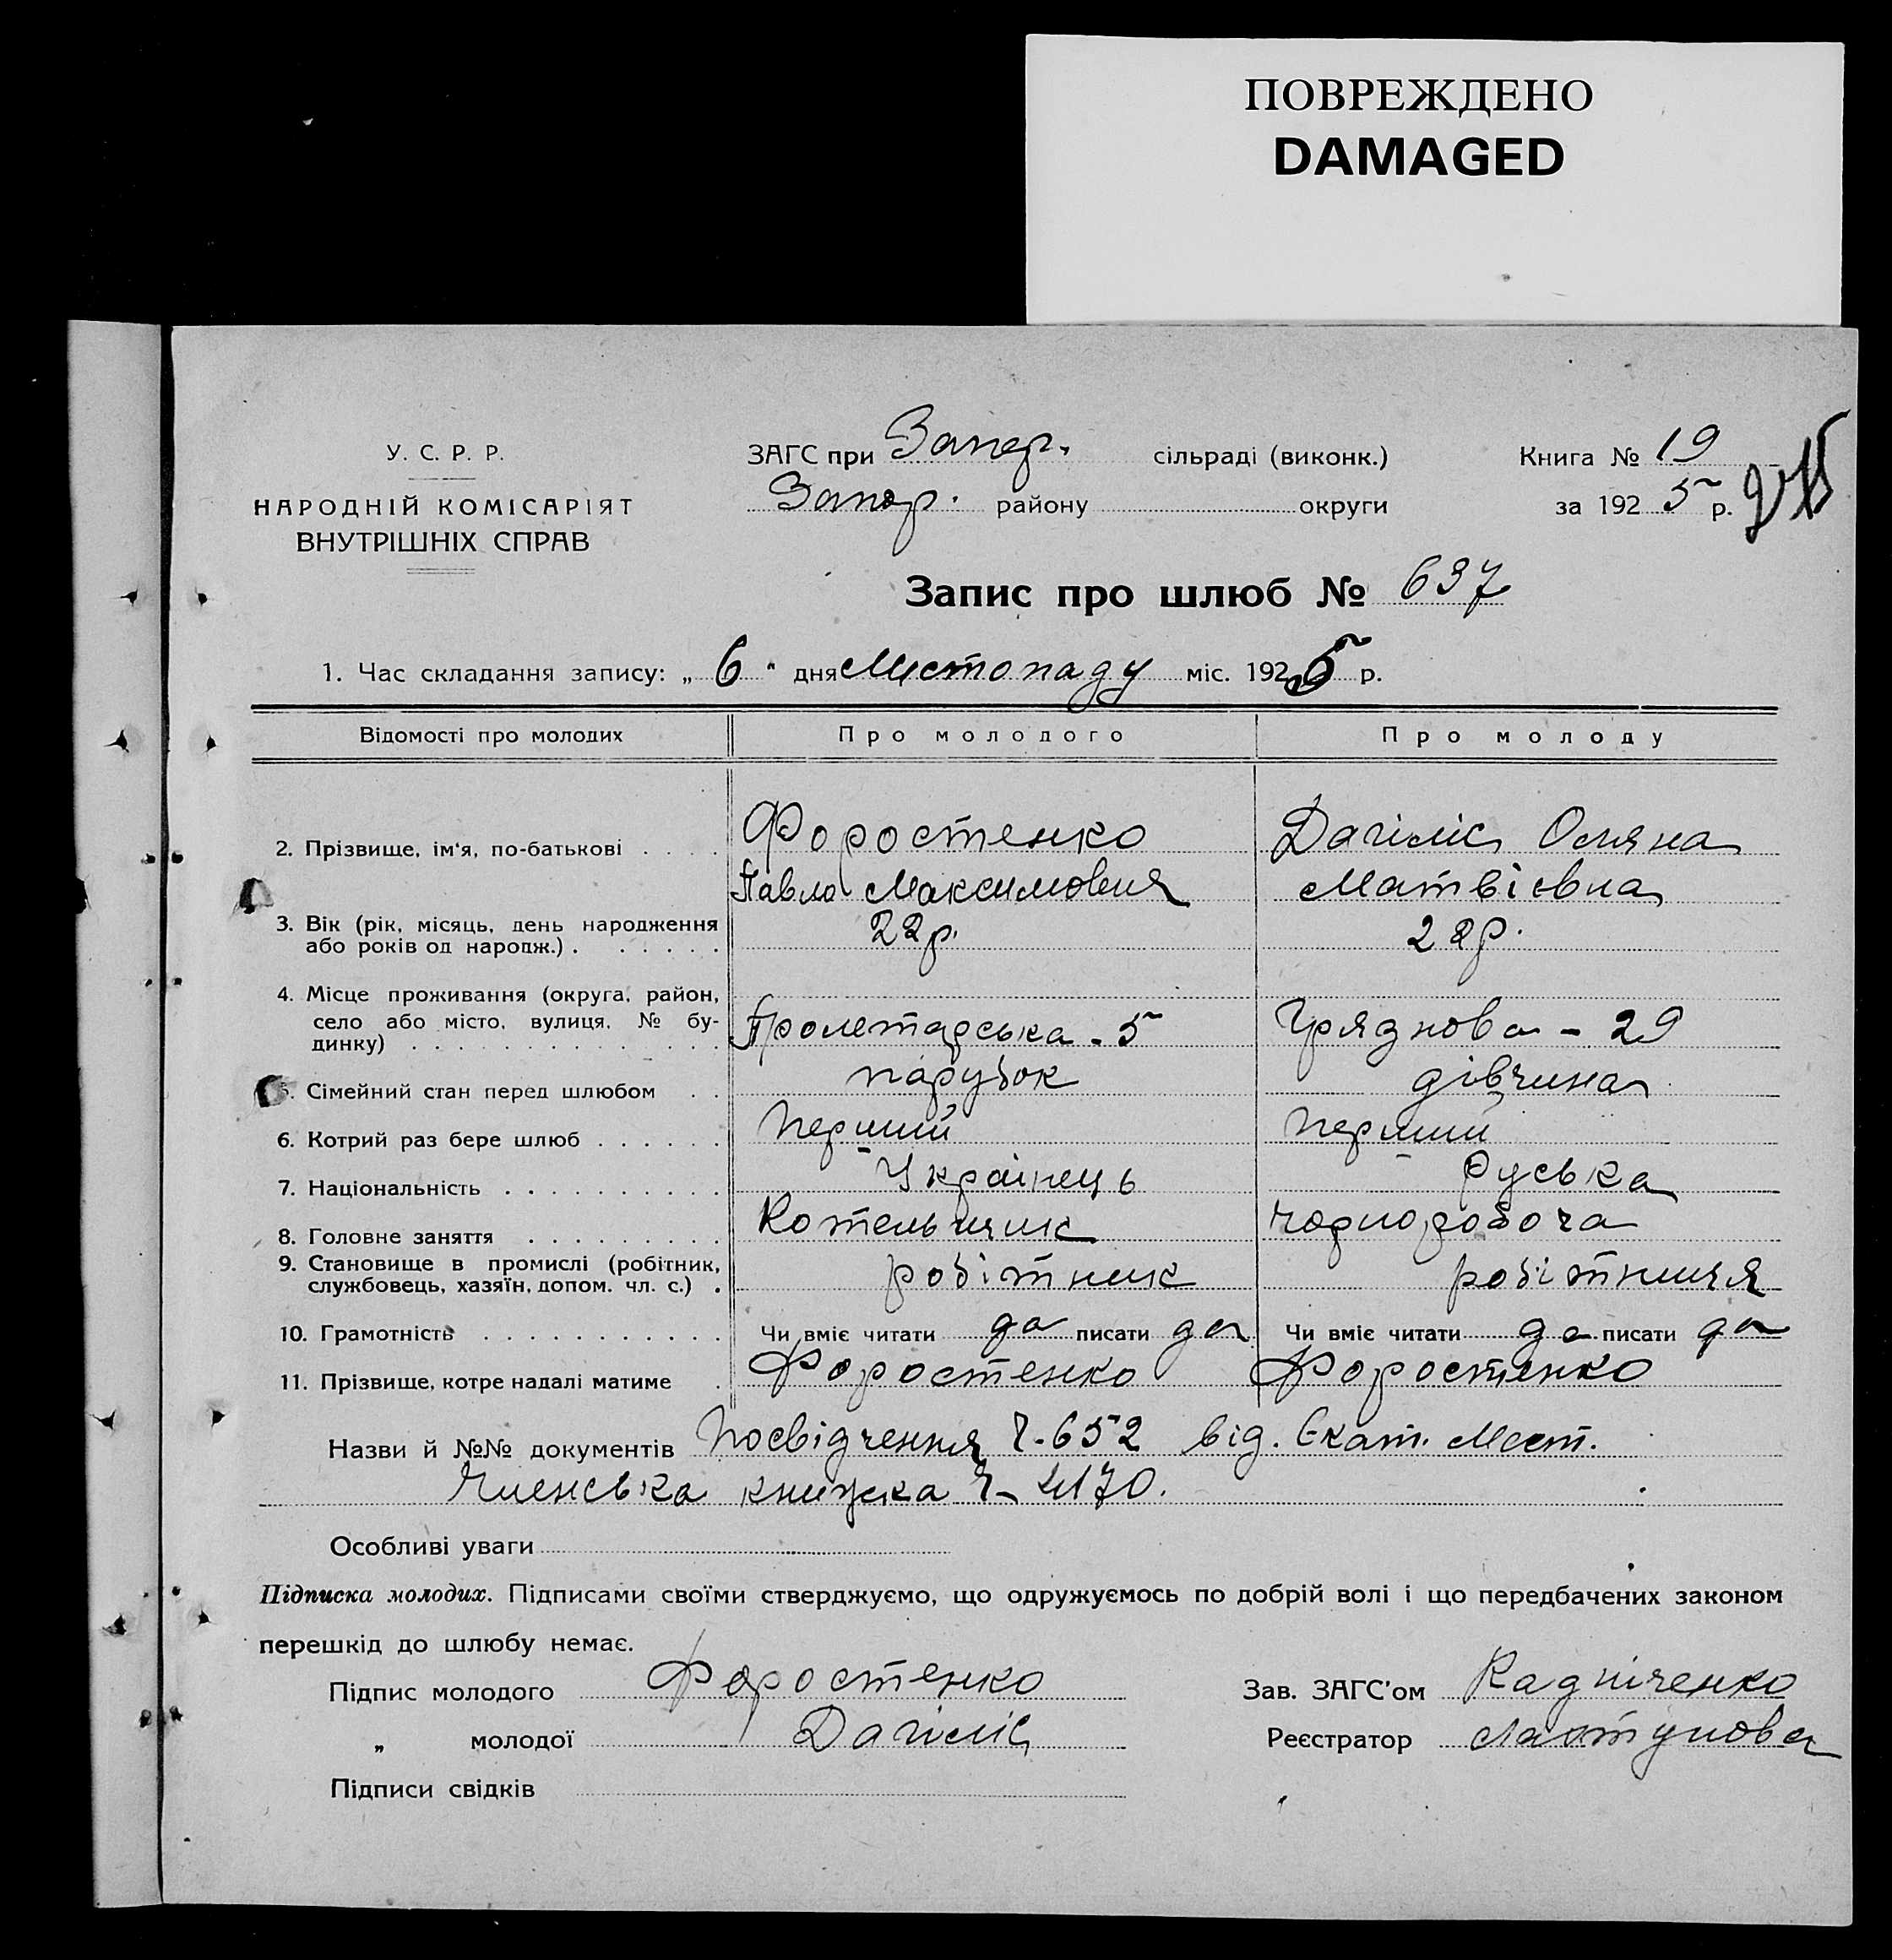 ПОВРЕЖДЕНО
DAMAGED
У. С. Р. Р.
НАРОДНІЙ КОМІСАРІЯТ
ВНУТРІШНІХ СПРАВ
ЗАГС при Запор. сільраді (виконк.)
Запор. району округи
Книга № 19
за 1925 р.
Запис про шлюб № 637
1. Час складання запису: „ 6 " дня Листопаду міс. 1925 р.
Відомості про молодих Про молодого Про молоду
2. Прізвище, ім'я, по-батькові Форостенко Дагіліс Оляна
Павло Максимович Матвієвна
3. Вік (рік, місяць, день народження 22 р. 22 р.
або років од народж.)
4. Місце проживання (округа, район,
село або місто, вулиця, № бу- Пролетарська - 5 Грязнова - 29
динку)
5. Сімейний стан перед шлюбом парубок дівчина
6. Котрий раз бере шлюб перший перший
7. Національність Українець руська
8. Головне заняття Котельщик чорноробоча
9. Становище в промислі (робітник, робітник робітниця
службовець, хазяїн, допом. чл. с.)
10. Грамотність Чи вміє читати да писати да Чи вміє читати да писати да
11. Прізвище, котре надалі матиме Форостенко Форостенко
Назви й №№ документів Посвідчення Ч-652 від. Екат. Мост.
Членська книжка Ч-4170.
Особливі уваги
Підписка молодих. Підписами своїми стверджуємо, що одружуємось по добрій волі і що передбачених законом
перешкід до шлюбу немає.
Підпис молодого Форостенко Зав. ЗАГС'ом
„ молодої Дагіліс Реєстратор
Підписи свідків